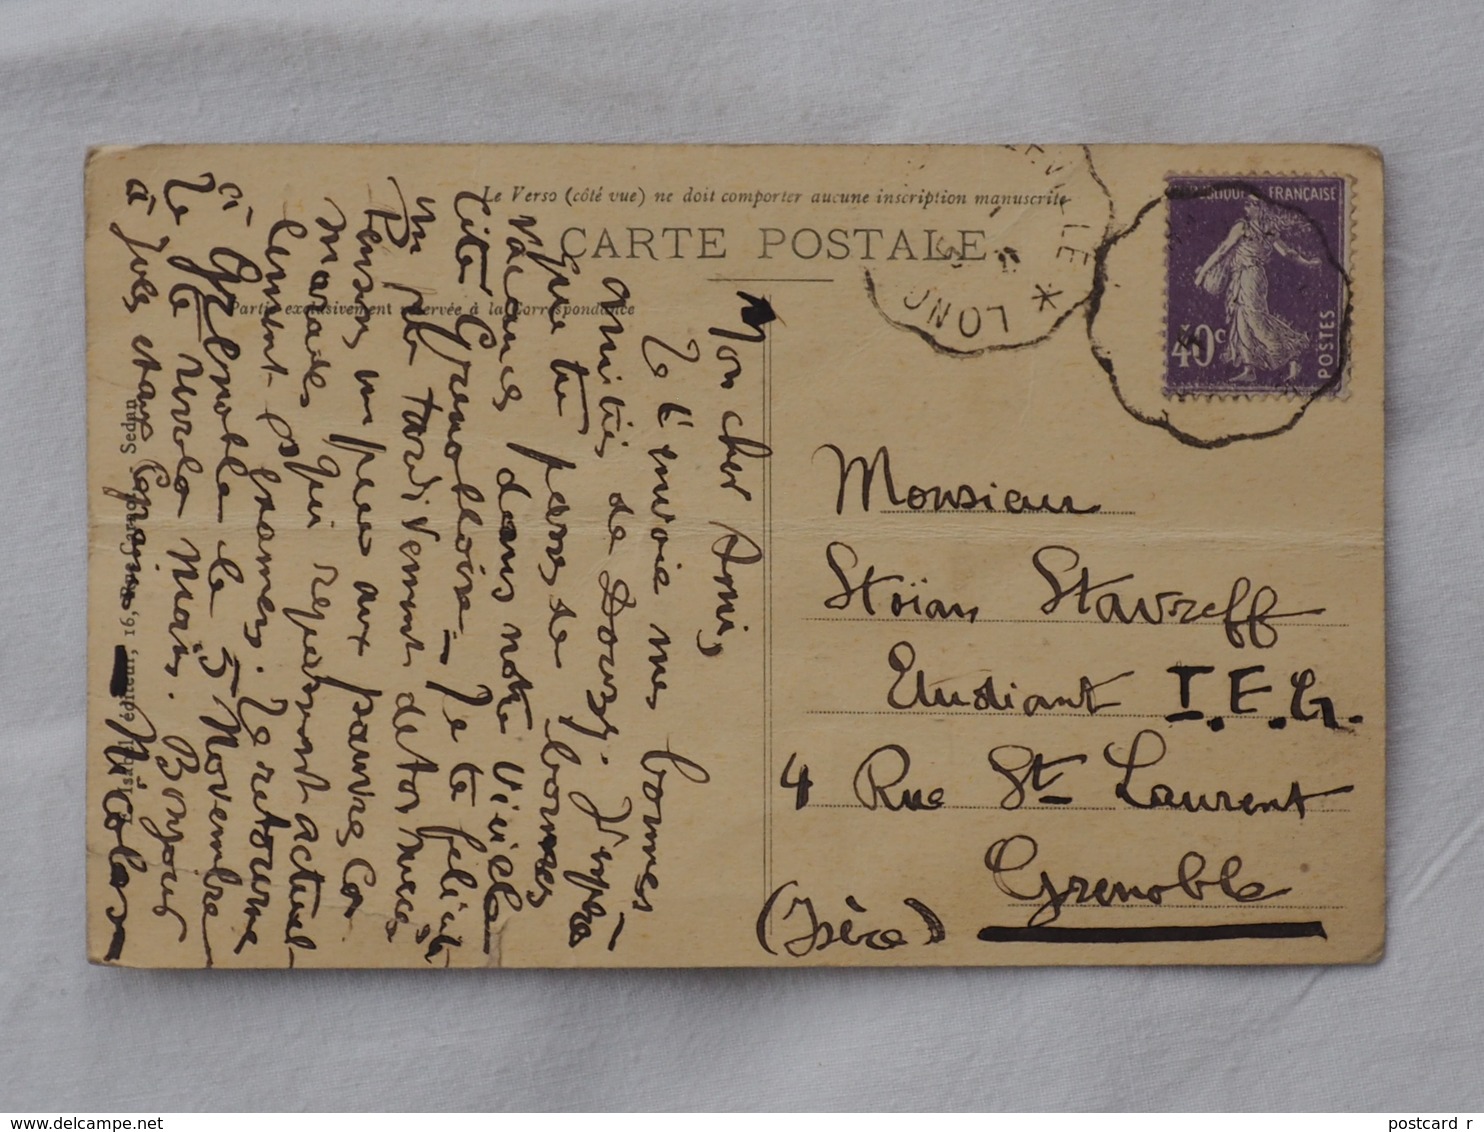 Le Verso (côté vue) ne doit comporter aucune inscription manuscrite
CARTE POSTALE
Partie exclusivement réservée à la Correspondance
Mon cher Ami,
Je t'envoie mes bonnes
amitiés de Douzy. J'espère
que tu passes de bonnes
vacances dans notre vieille
cité Grenobloise. Je te félicite
un peu tardivement de tes succès
Pensons un peu aux pauvres Ca-
marades qui repassent actuel-
lement examens. Je retourne
à Grenoble le 5 Novembre
Je te reverrai. Bonjour
à Jules et aux Copains
Nicolas
éditeur, 16, Sedan
Monsieur
Stoïan Stavreff
Etudiant I.E.G.
4 Rue St Laurent
Grenoble
(Isère)
RÉPUBLIQUE FRANÇAISE
40c
POSTES
LONG
postcard r